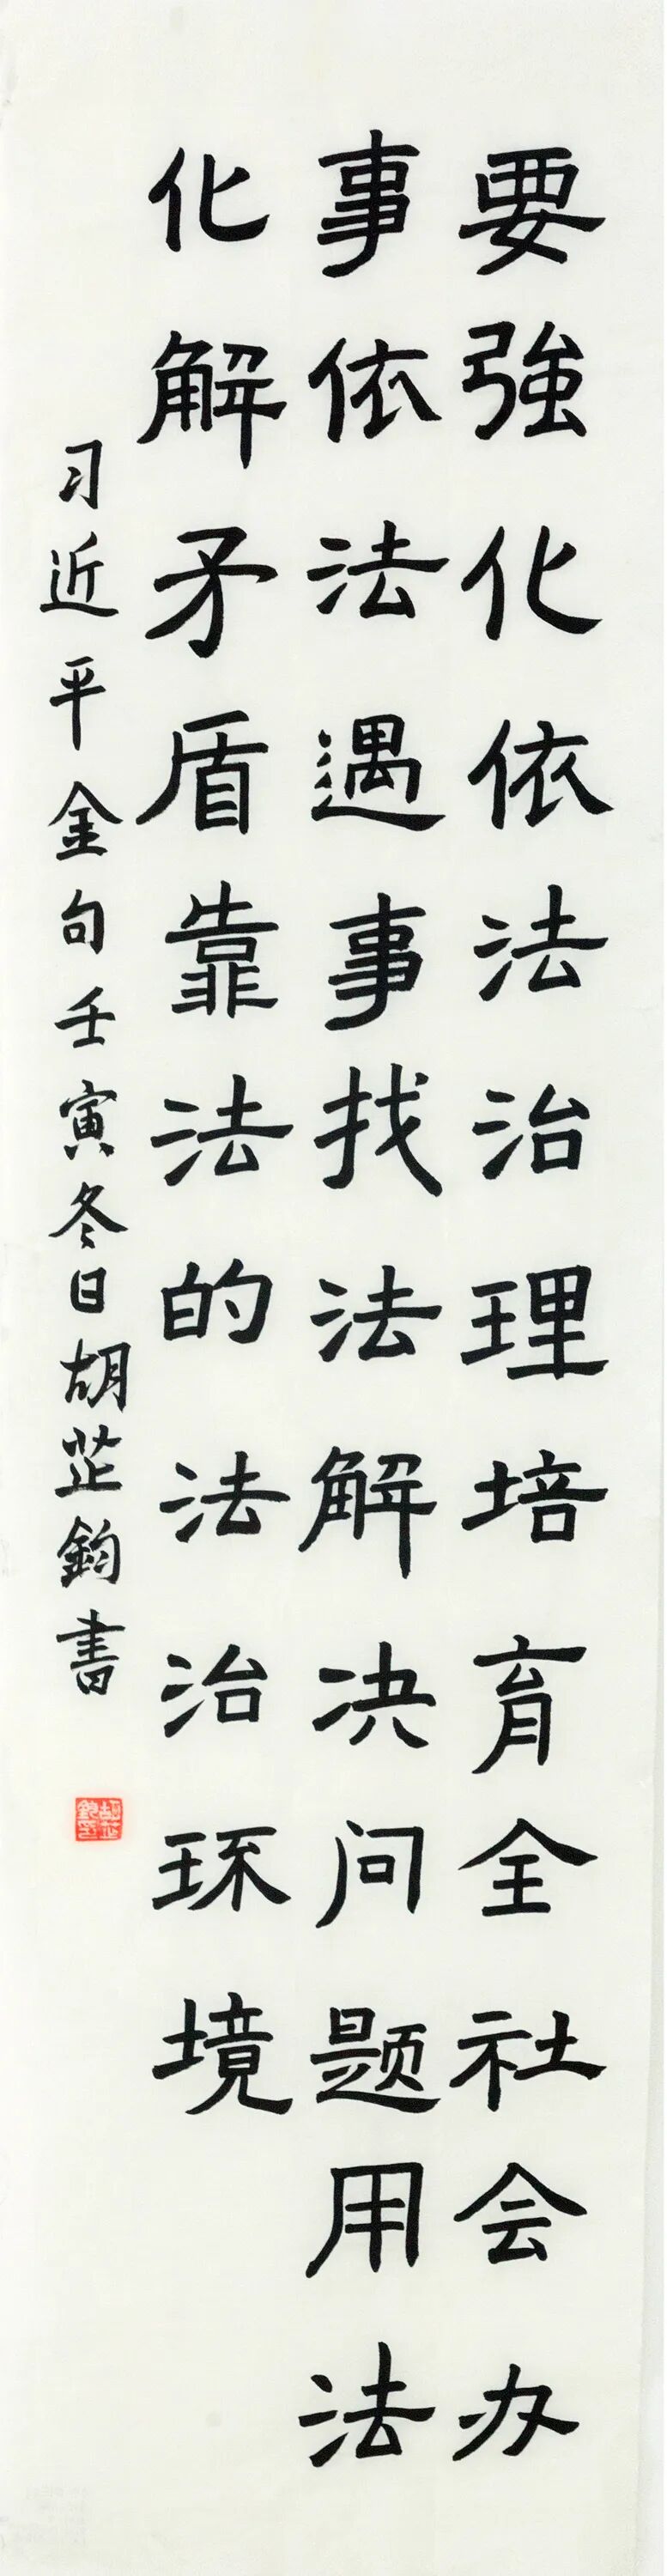 要強化依法治理培育全社会办
事依法遇事找法解决问题用法
化解矛盾靠法的法治环境
习近平金句壬寅冬日胡芷鈞書